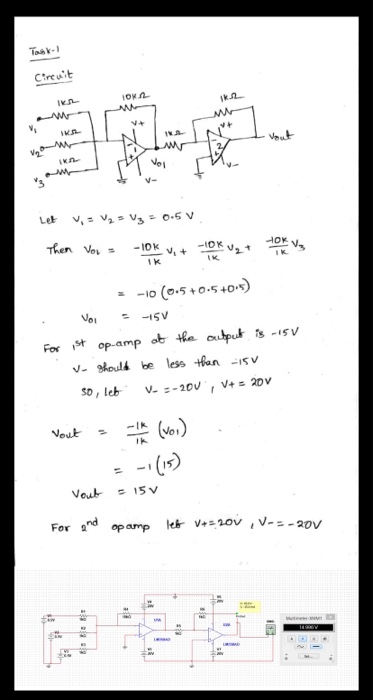 Task-1
Circuit
1KΩ
10KΩ
1KΩ
V1
1KΩ
V+
1KΩ
V+
Vout
V2
1KΩ
V01
V-
V-
V3
Let V1 = V2 = V3 = 0.5 V
Then V01 = -10K/1K V1 + -10K/1K V2 + -10K/1K V3
= -10 (0.5+0.5+0.5)
V01 = -15V
For 1st op-amp at the output is -15V
V- should be less than -15V
so, let V- = -20V, V+ = 20V
Vout = -1K/1K (V01)
= -1(15)
Vout = 15V
For 2nd opamp let V+=20V, V-=-20V